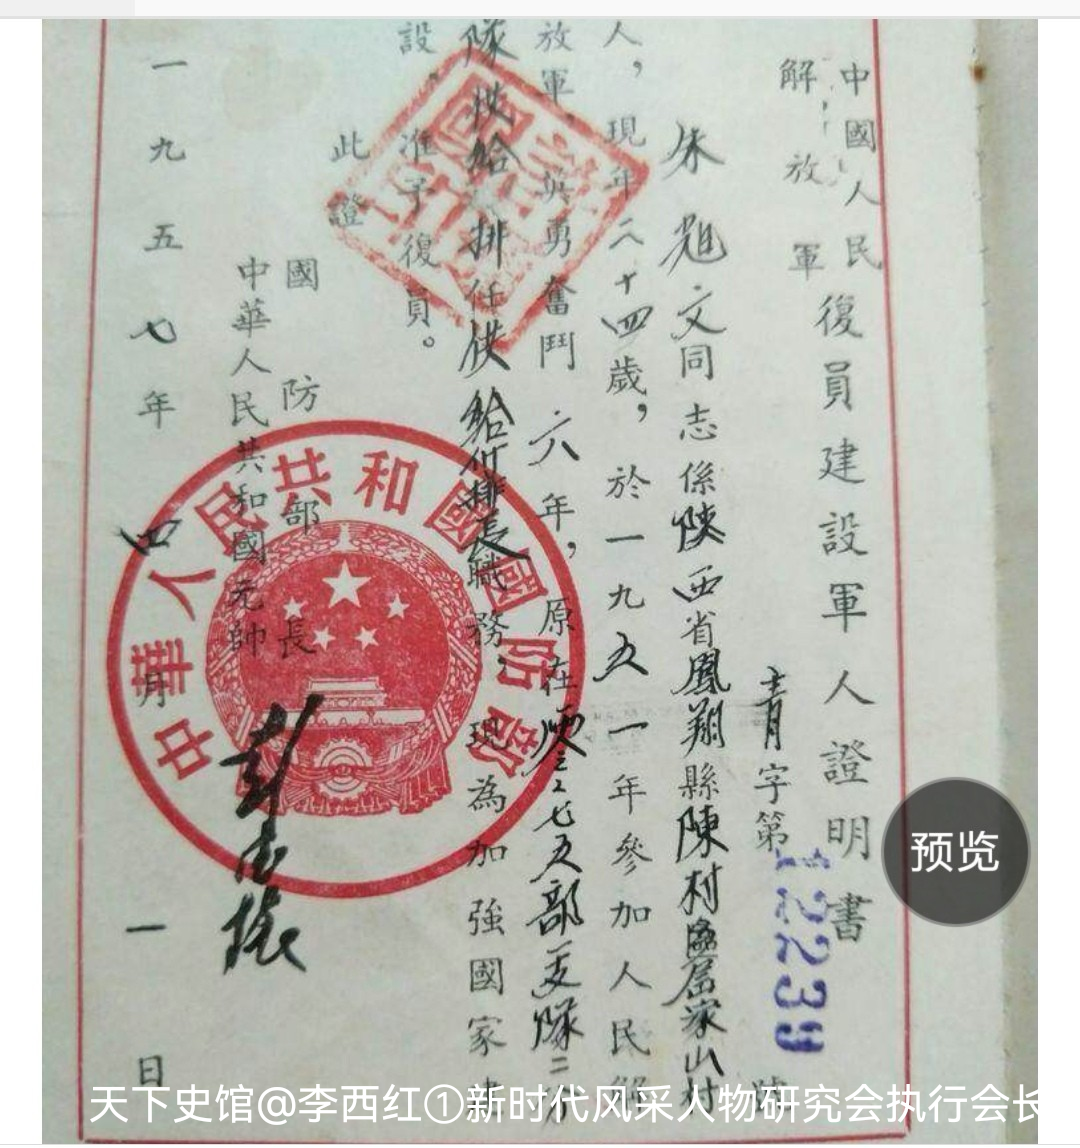 中國人民解放軍復員建設軍人證明書
青字第12239
朱旭文同志係陝西省鳳翔縣陳村區屈家山村
人,現年二十四歲,於一九五一年參加人民解
放軍,英勇奮鬥六年,原在零二七五部支隊二分
隊供給排任供給付排長職務,現為加強國家建
設,准予復員。
此證
國防部長
中華人民共和國元帥
彭德懷
中華人民共和國國防部
一九五七年四月一日
预览
天下史馆@李西红①新时代风采人物研究会执行会长